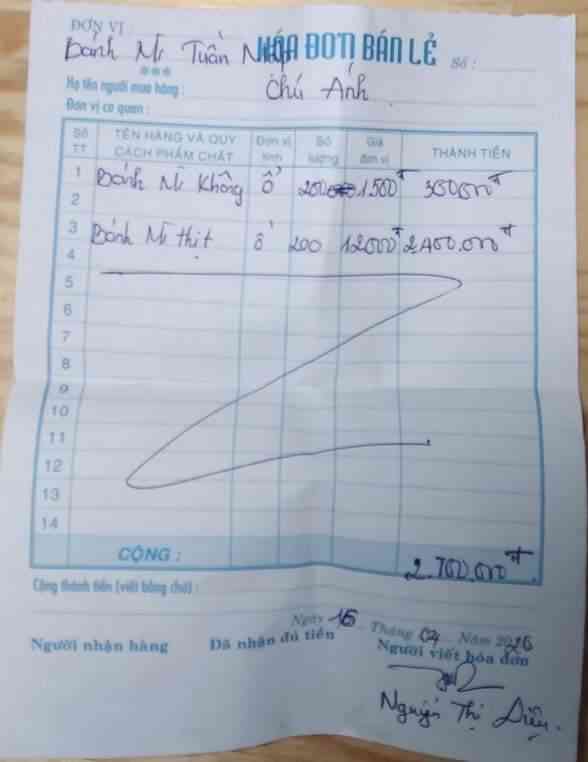 ĐƠN VỊ
Bánh Mì Tuấn
HÓA ĐƠN BÁN LẺ
Số :
Họ tên người mua hàng : Chú Ánh
Đơn vị cơ quan :
Số TT TÊN HÀNG VÀ QUY CÁCH PHẨM CHẤT Đơn vị tính Số lượng Giá đơn vị THÀNH TIỀN
1 Bánh Mì Không ổ 200 1.500đ 300.000đ
2
3 Bánh Mì thịt ổ 200 12.000đ 2.400.000đ
4
5
6
7
8
9
10
11
12
13
14
CỘNG : 2.700.000đ
Cộng thành tiền (viết bằng chữ) :
Ngày 16 Tháng 04 Năm 2026
Người nhận hàng Đã nhận đủ tiền Người viết hóa đơn
Nguyễn Thị Diệu.